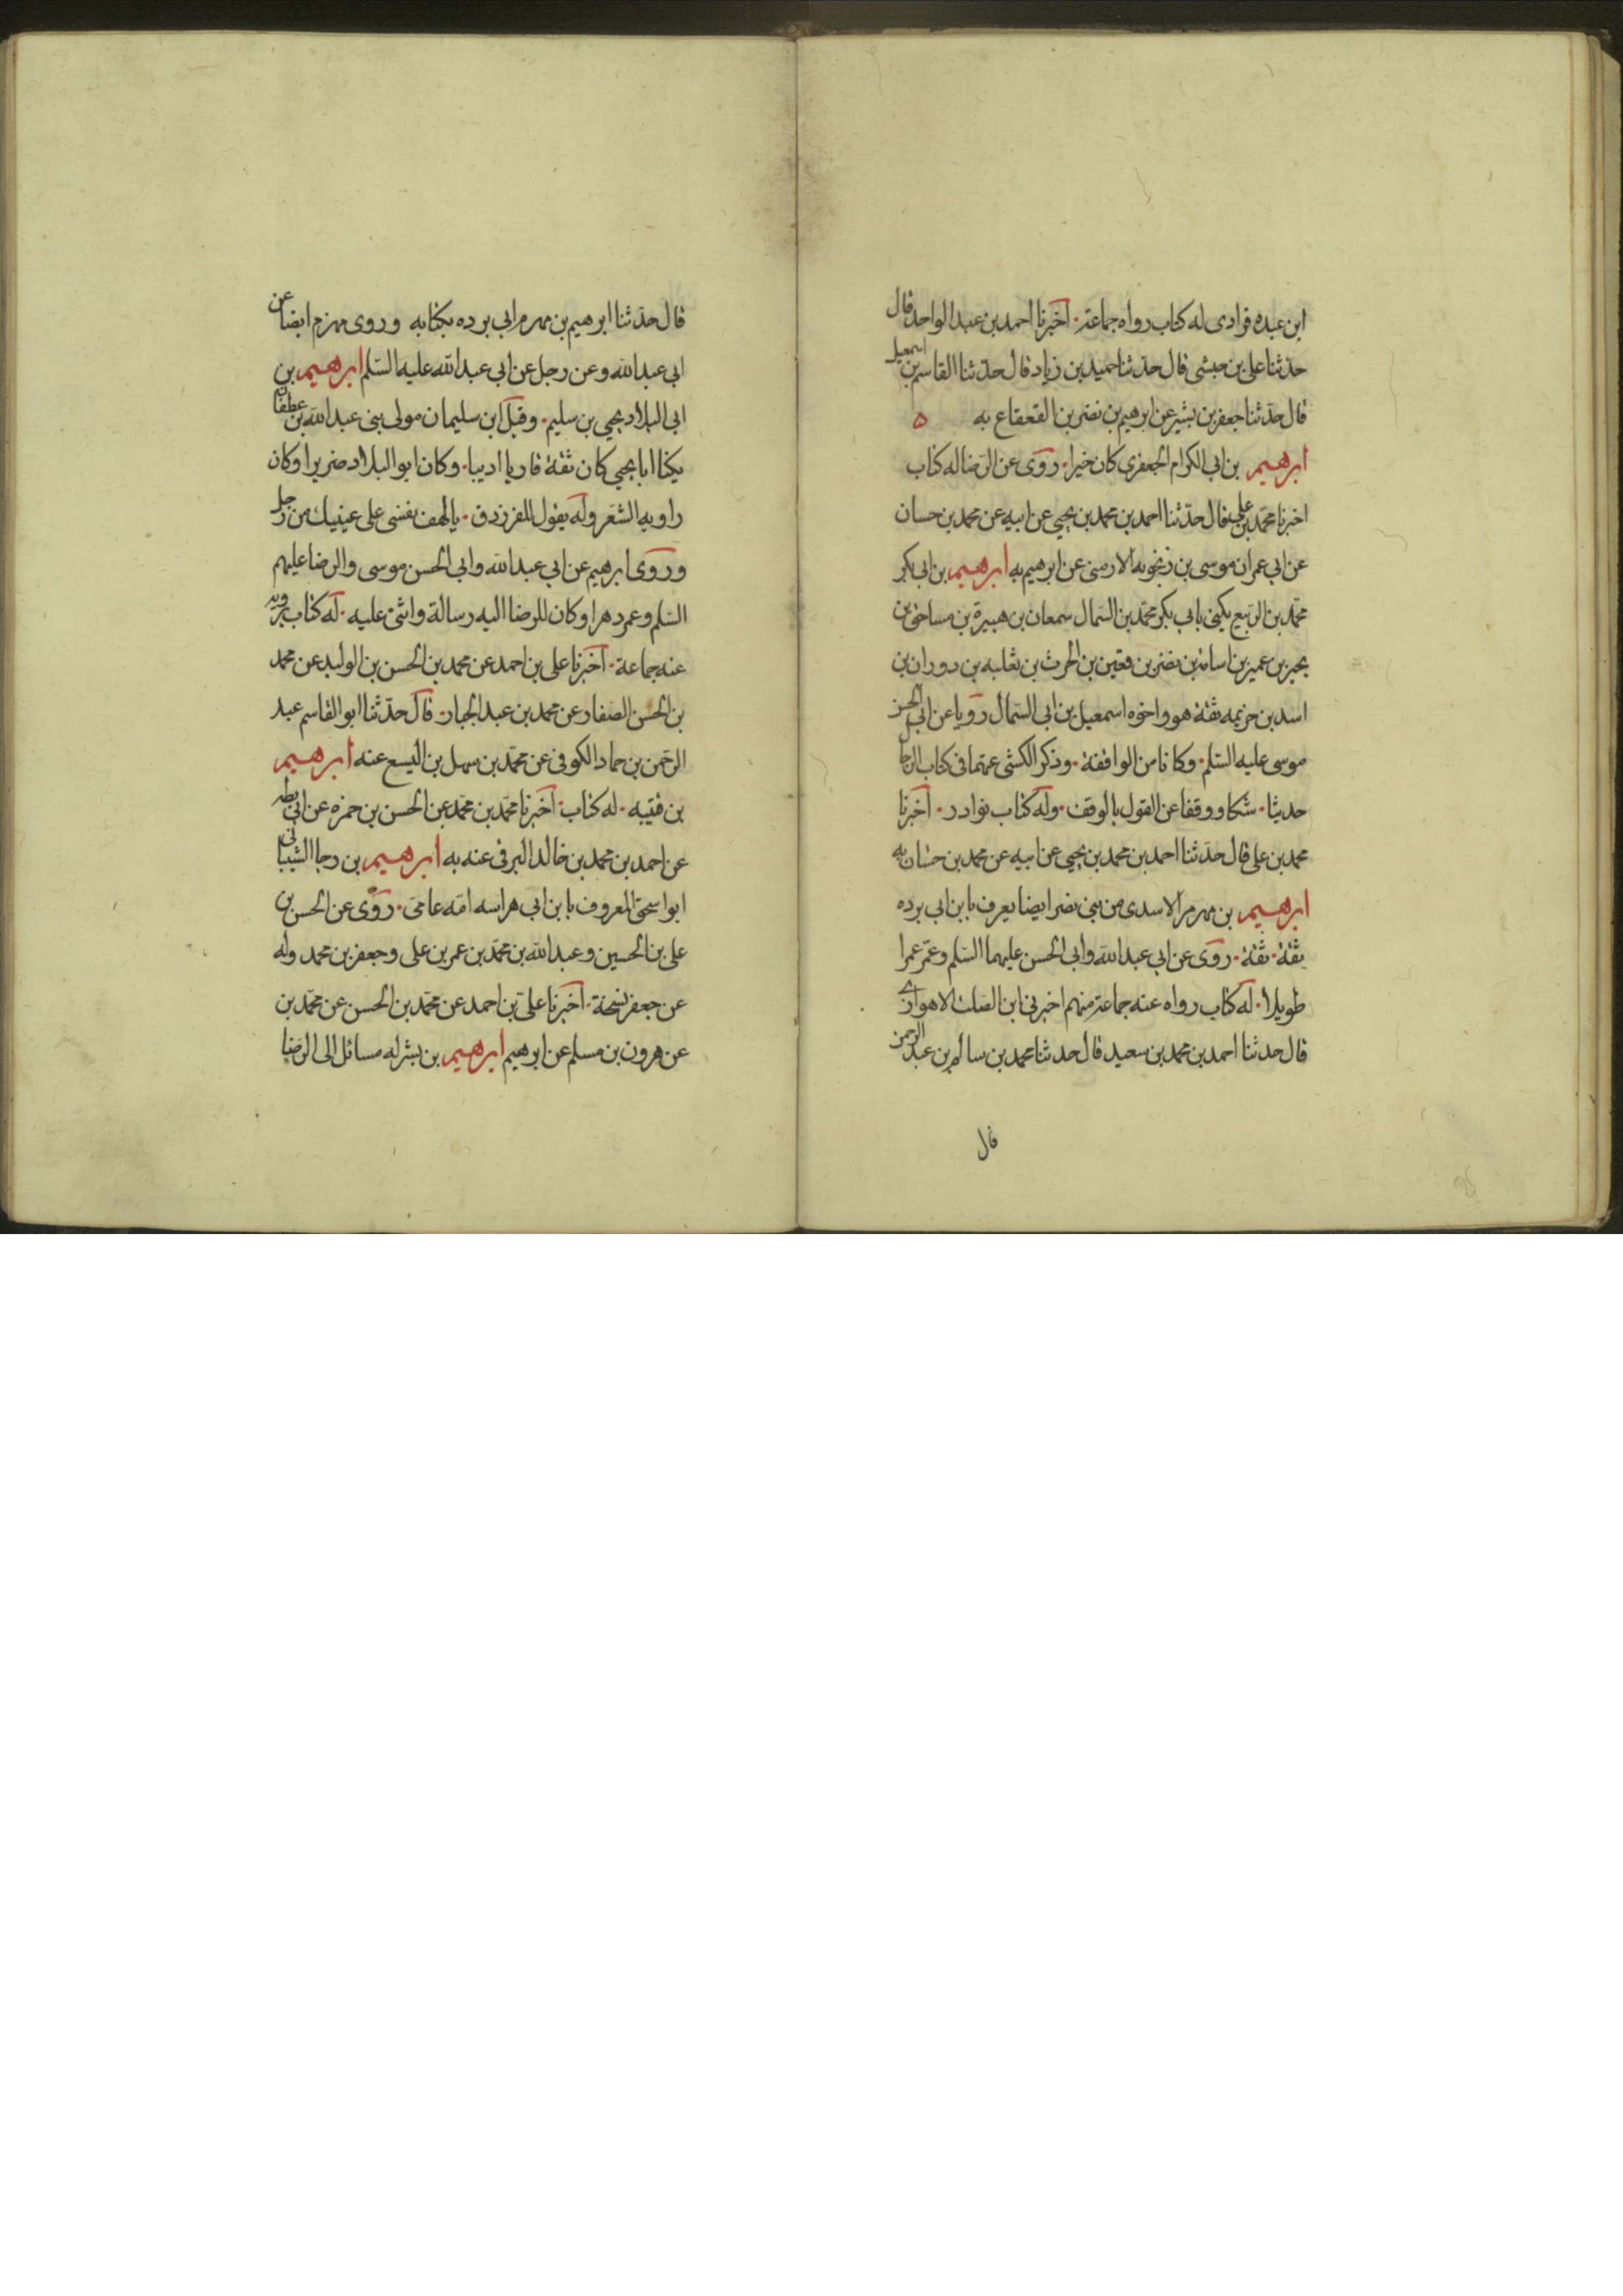 ابن عبده فرادى له كتاب رواه جماعة. اخبرنا احمد بن عبد الواحد قال
حدثنا على بن حبشى قال حدثنا حميد بن زياد قال حدثنا القاسم بن اسمعيل
قال حدثنا جعفر بن بشير عن ابرهيم بن نصر بن القعقاع به ه
ابرهيم بن ابى الكرام الجعفرى كان خيرا. روى عن الرضا له كتاب
اخبرنا محمد بن على قال حدثنا احمد بن محمد بن يحيى عن ابيه عن محمد بن حسان
عن ابى عمران موسى بن زنجويه الارمنى عن ابرهيم به ابرهيم بن ابى بكر
محمد بن الربيع يكنى بابى بكر محمد بن السمال سمعان بن هبيرة بن مساحق بن
بجير بن عمير بن اسامة بن نصر بن قعين بن الحرث بن ثعلبه بن دوران بن
اسد بن خزيمه ثقة هو واخوه اسمعيل بن ابى السمال رويا عن ابى الحسن
موسى عليه السلم. وكانا من الواقفة. وذكر الكشى عنهما فى كتاب الرجا
حديثا. شكا ووقفا عن القول بالوقف. وله كتاب نوادر. اخبرنا
محمد بن على قال حدثنا احمد بن محمد بن يحيى عن ابيه عن محمد بن حسان به
ابرهيم بن مهزم الاسدى من بنى نصر ايضا يعرف بابن ابى برده
ثقة. ثقة. روى عن ابى عبد الله وابى الحسن عليهما السلم وعمر عمرا
طويلا. له كتاب رواه عنه جماعة منهم اخبرنى ابن الصلت الاهوازى
قال حدثنا احمد بن محمد بن سعيد قال حدثنا محمد بن سالم بن عبد الرحمن
قال
قال حدثنا ابرهيم بن مهزم ابى برده بكتابه وروى مهزم ايضا عن
ابى عبد الله وعن رجل عن ابى عبد الله عليه السلم ابرهيم بن
ابى البلاد يحيى بن سليم. وقيل ابن سليمان مولى بنى عبد الله بن عطفان
يكنا ابا يحيى كان ثقة قاريا اديبا. وكان ابو البلاد ضريرا وكان
راويه الشعر وله يقول الفرزدق. يا لهف نفسى على عينيك من رجل
وروى ابرهيم عن ابى عبد الله وابى الحسن موسى والرضا عليهم
السلم وعمر دهرا وكان للرضا اليه رسالة واثنى عليه. له كتاب يرويه
عنه جماعة. اخبرنا على بن احمد عن محمد بن الحسن بن الوليد عن محمد
بن الحسن الصفار عن محمد بن عبد الجبار. قال حدثنا ابو القاسم عبد
الرحمن بن حماد الكوفى عن محمد بن سهل بن اليسع عنه ابرهيم
بن قتيبه. له كتاب. اخبرنا محمد بن محمد عن الحسن بن حمزه عن ابن بطه
عن احمد بن محمد بن خالد البرقى عنه به ابرهيم بن رجا الشيبانى
ابو اسحق المعروف بابن ابى هراسه امه عامى. روى عن الحسن بن
على بن الحسين وعبد الله بن محمد بن عمر بن على وجعفر بن محمد وله
عن جعفر نسخة. اخبرنا على بن احمد عن محمد بن الحسن عن محمد بن
عن هرون بن مسلم عن ابرهيم ابرهيم بن بشر له مسائل الى الرضا